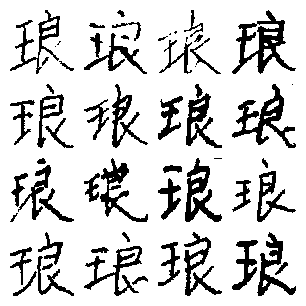 琅 琅 琅 琅
琅 琅 琅 琅
琅 琅 琅 琅
琅 琅 琅 琅